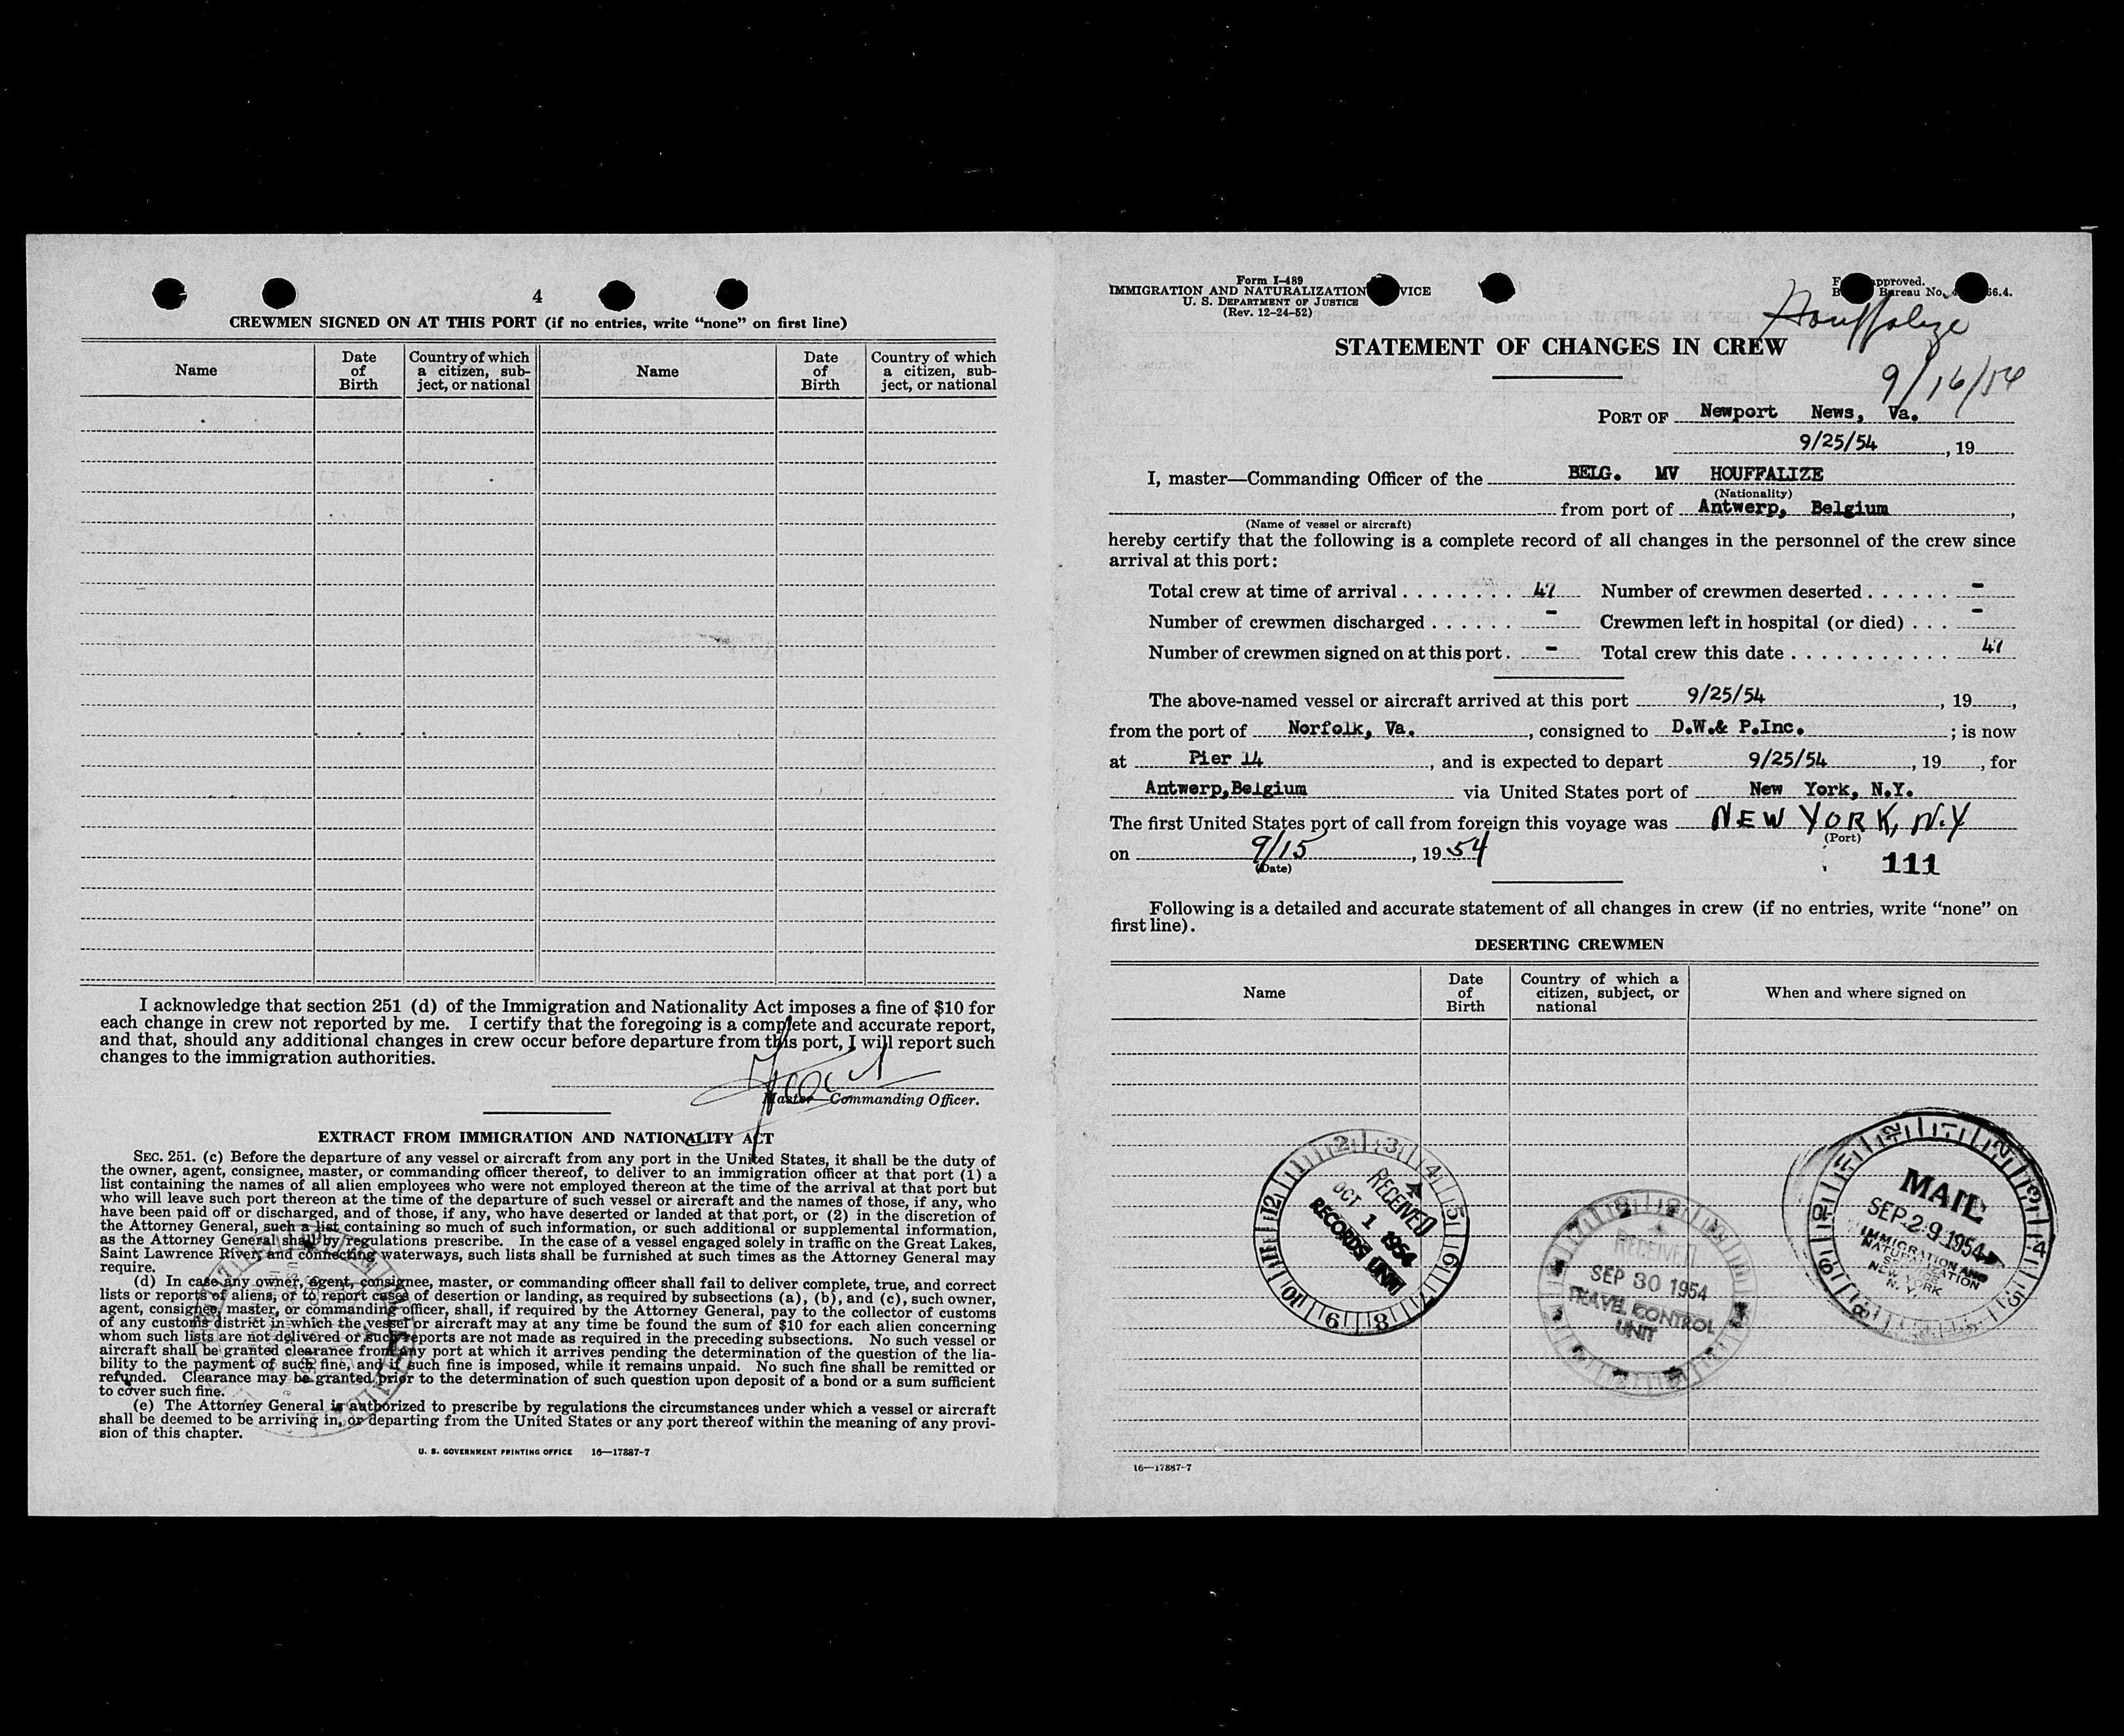 4
CREWMEN SIGNED ON AT THIS PORT (if no entries, write “none” on first line)
Name Date of Birth Country of which a citizen, sub-ject, or national Name Date of Birth Country of which a citizen, sub-ject, or national
I acknowledge that section 251 (d) of the Immigration and Nationality Act imposes a fine of $10 for
each change in crew not reported by me. I certify that the foregoing is a complete and accurate report,
and that, should any additional changes in crew occur before departure from this port, I will report such
changes to the immigration authorities.
Master—Commanding Officer.
EXTRACT FROM IMMIGRATION AND NATIONALITY ACT
SEC. 251. (c) Before the departure of any vessel or aircraft from any port in the United States, it shall be the duty of
the owner, agent, consignee, master, or commanding officer thereof, to deliver to an immigration officer at that port (1) a
list containing the names of all alien employees who were not employed thereon at the time of the arrival at that port but
who will leave such port thereon at the time of the departure of such vessel or aircraft and the names of those, if any, who
have been paid off or discharged, and of those, if any, who have deserted or landed at that port, or (2) in the discretion of
the Attorney General, such a list containing so much of such information, or such additional or supplemental information,
as the Attorney General shall by regulations prescribe. In the case of a vessel engaged solely in traffic on the Great Lakes,
Saint Lawrence River, and connecting waterways, such lists shall be furnished at such times as the Attorney General may
require.
(d) In case any owner, agent, consignee, master, or commanding officer shall fail to deliver complete, true, and correct
lists or reports of aliens, or to report cases of desertion or landing, as required by subsections (a), (b), and (c), such owner,
agent, consignee, master, or commanding officer, shall, if required by the Attorney General, pay to the collector of customs
of any customs district in which the vessel or aircraft may at any time be found the sum of $10 for each alien concerning
whom such lists are not delivered or such reports are not made as required in the preceding subsections. No such vessel or
aircraft shall be granted clearance from any port at which it arrives pending the determination of the question of the lia-
bility to the payment of such fine, and if such fine is imposed, while it remains unpaid. No such fine shall be remitted or
refunded. Clearance may be granted prior to the determination of such question upon deposit of a bond or a sum sufficient
to cover such fine.
(e) The Attorney General is authorized to prescribe by regulations the circumstances under which a vessel or aircraft
shall be deemed to be arriving in, or departing from the United States or any port thereof within the meaning of any provi-
sion of this chapter.
U. S. GOVERNMENT PRINTING OFFICE 16—17887-7
Form I-489
IMMIGRATION AND NATURALIZATION VICE
U. S. DEPARTMENT OF JUSTICE
(Rev. 12-24-52)
pproved.
Bureau No. 66.4.
Houffalize
9/16/54
STATEMENT OF CHANGES IN CREW
PORT OF Newport News, Va.
9/25/54, 19
I, master—Commanding Officer of the BELG. MV HOUFFALIZE
(Nationality)
from port of Antwerp, Belgium,
(Name of vessel or aircraft)
hereby certify that the following is a complete record of all changes in the personnel of the crew since
arrival at this port:
Total crew at time of arrival . . . . . . . . 47 Number of crewmen deserted . . . . . . -
Number of crewmen discharged . . . . . . - Crewmen left in hospital (or died) . . . -
Number of crewmen signed on at this port . - Total crew this date . . . . . . . . . . . . 47
The above-named vessel or aircraft arrived at this port 9/25/54, 19,
from the port of Norfolk, Va., consigned to D.W.& P.Inc.; is now
at Pier 14, and is expected to depart 9/25/54, 19, for
Antwerp,Belgium via United States port of New York, N.Y.
The first United States port of call from foreign this voyage was NEW YORK, N.Y
(Port)
on 9/15, 1954
(Date)
111
Following is a detailed and accurate statement of all changes in crew (if no entries, write “none” on
first line).
DESERTING CREWMEN
Name Date of Birth Country of which a citizen, subject, or national When and where signed on
RECEIVED
OCT 1 1954
RECORDS UNIT
RECEIVED
SEP 30 1954
TRAVEL CONTROL
UNIT
MAIL
SEP 29 1954
IMMIGRATION AND
NATURALIZATION
SERVICE
NEW YORK
N. Y.
16—17887-7